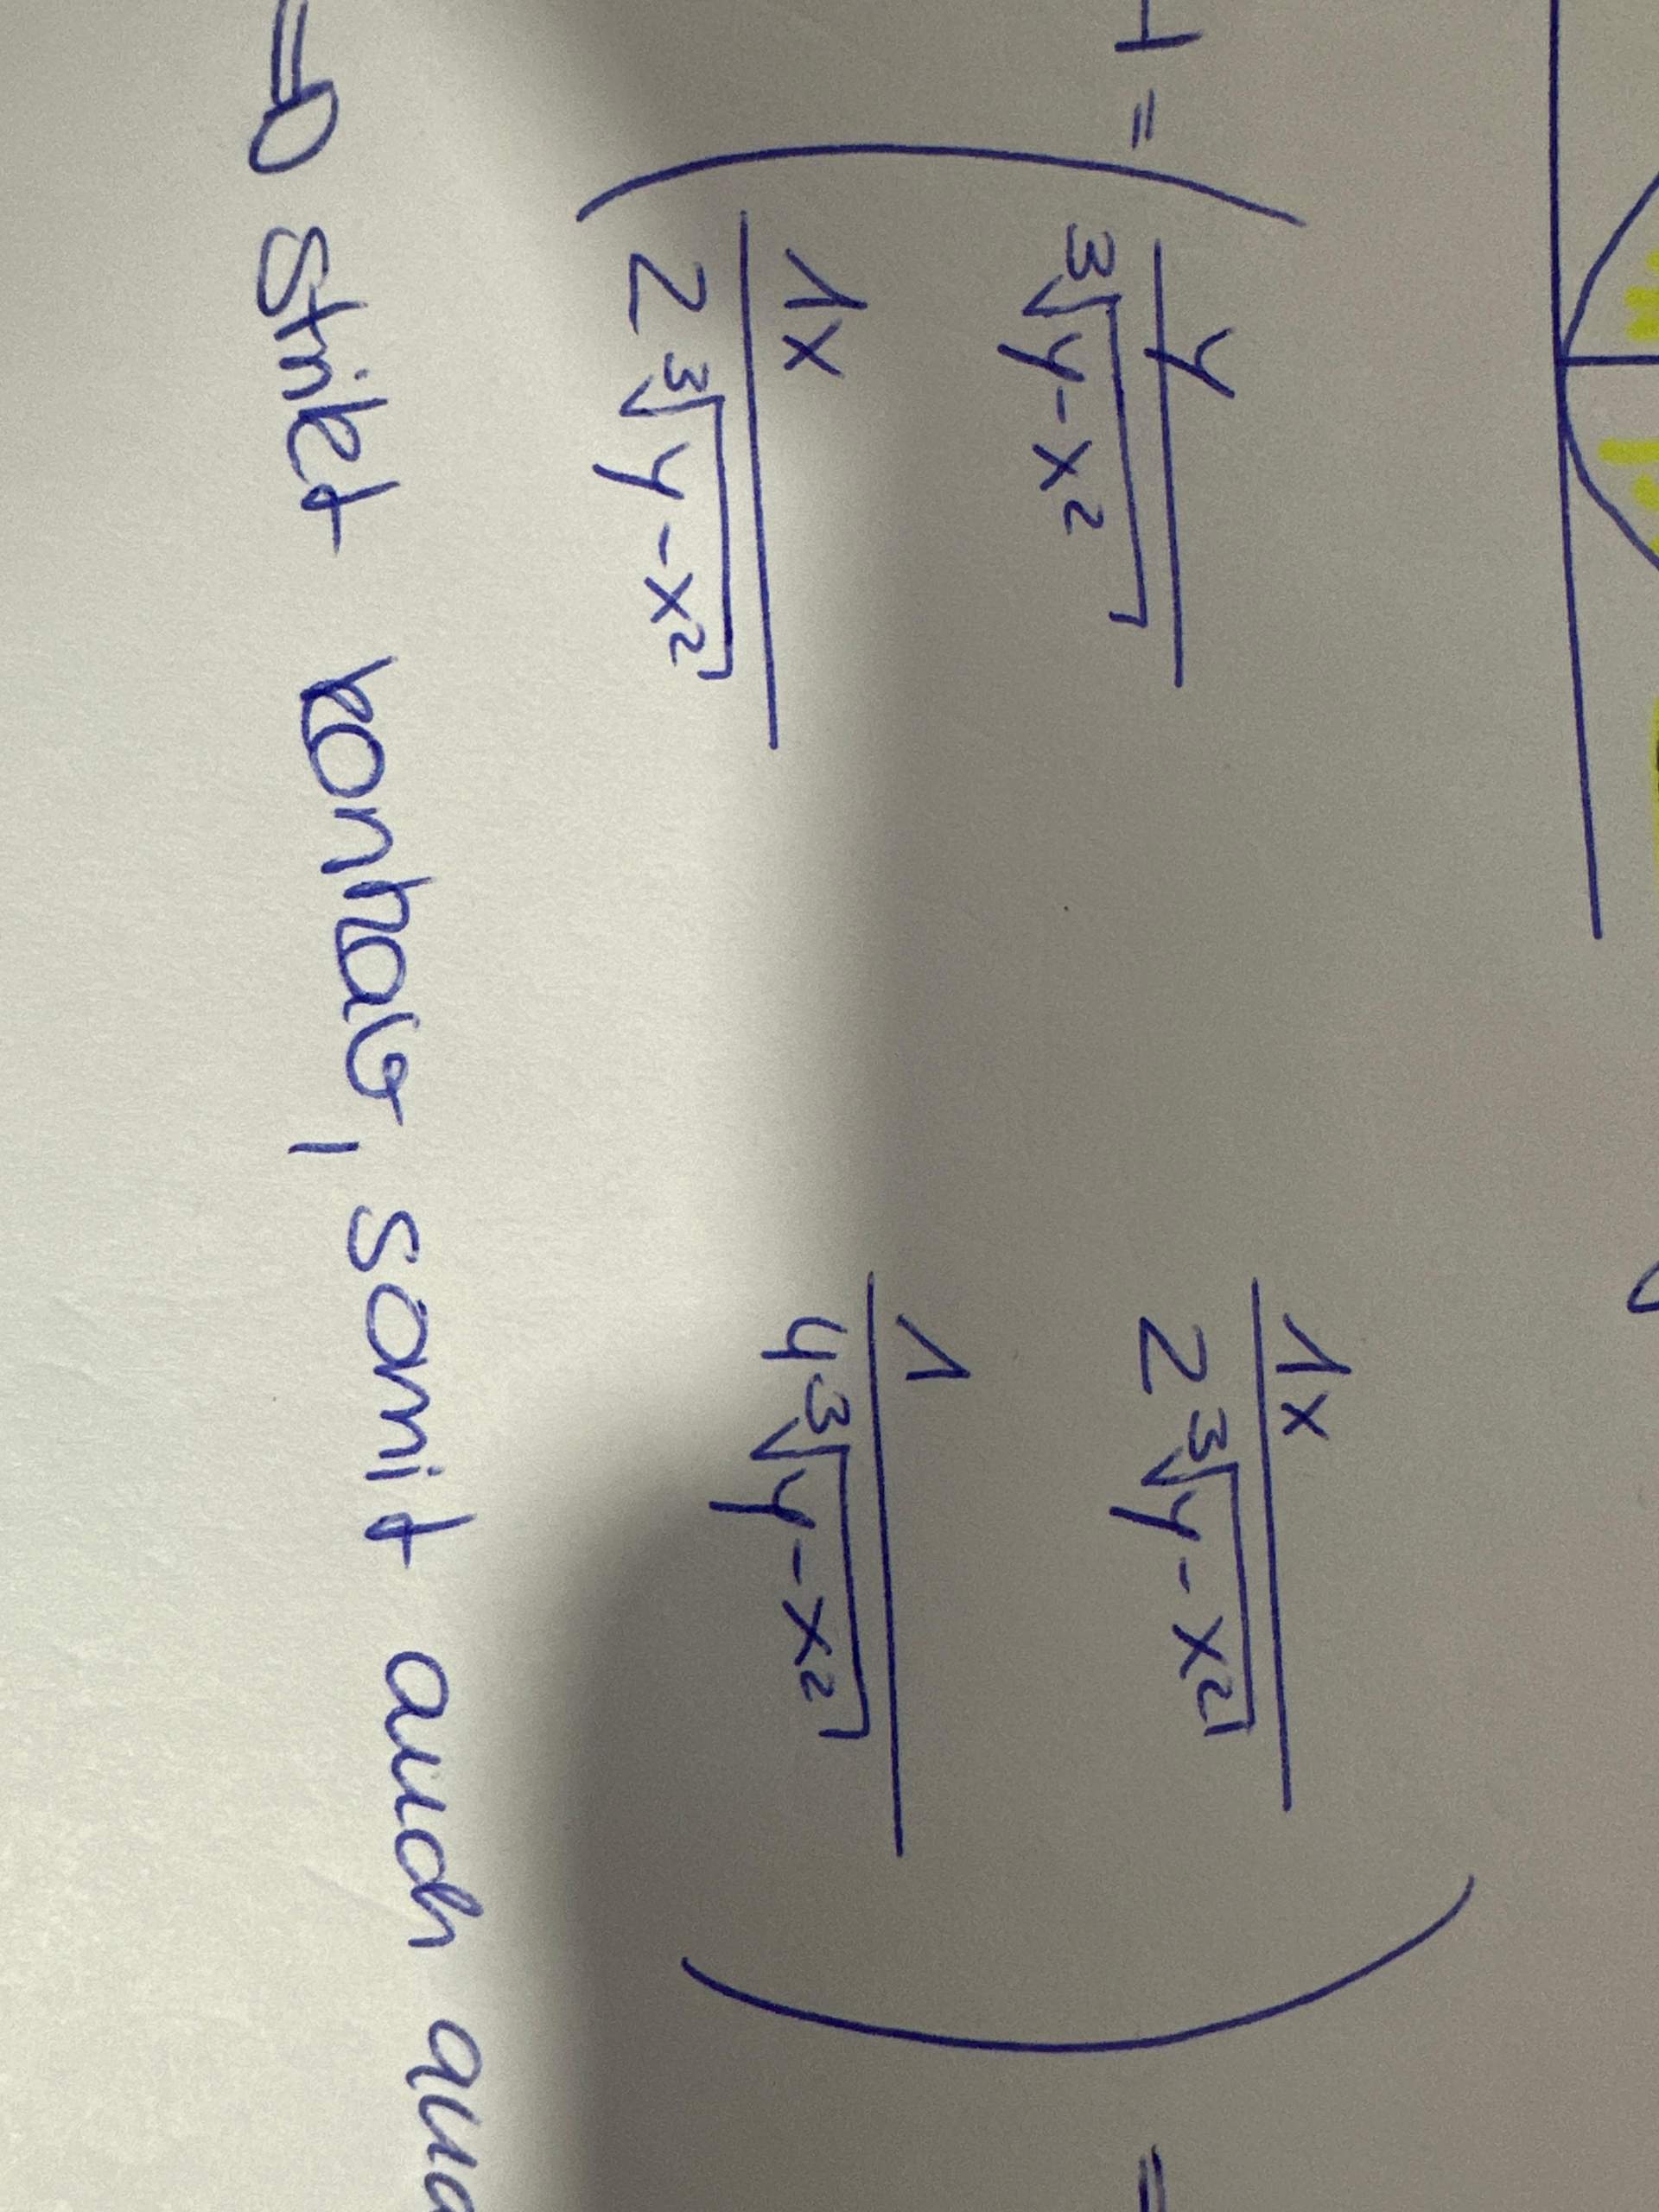 H = ( y/∛(y-x²) 1x/(2∛(y-x²))
1x/(2∛(y-x²)) 1/(4∛(y-x²)) ) =
⇒ Strikt konkav, somit auch qua